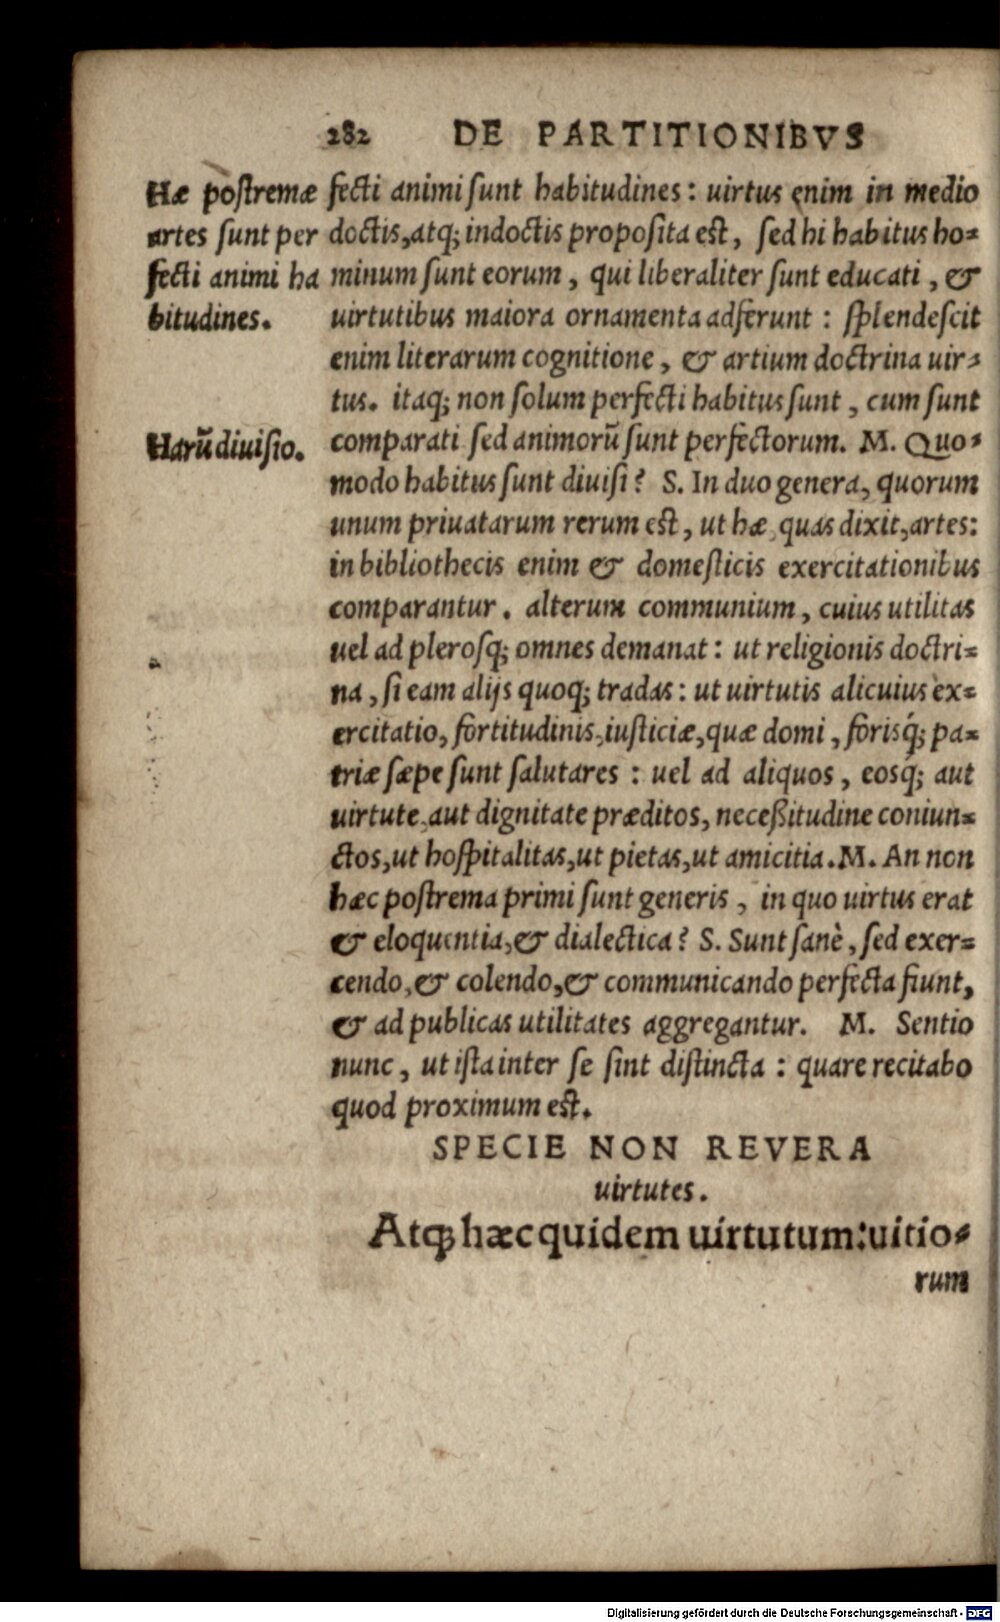 282 DE PARTITIONIBVS
Hæ postremæ
artes sunt per
fecti animi ha
bitudines.
Harũ diuisio.
fecti animi sunt habitudines: uirtus enim in medio
doctis, atq; indoctis proposita est, sed hi habitus ho-
minum sunt eorum, qui liberaliter sunt educati, &
uirtutibus maiora ornamenta adferunt: splendescit
enim literarum cognitione, & artium doctrina uir-
tus. itaq; non solum perfecti habitus sunt, cum sunt
comparati sed animorũ sunt perfectorum. M. Quo-
modo habitus sunt diuisi? S. In duo genera, quorum
unum priuatarum rerum est, ut hæ, quas dixit, artes:
in bibliothecis enim & domesticis exercitationibus
comparantur. alterum communium, cuius utilitas
uel ad plerosq; omnes demanat: ut religionis doctri-
na, si eam alijs quoq; tradas: ut uirtutis alicuius ex-
ercitatio, fortitudinis, iusticiæ, quæ domi, forisq́; pa-
triæ sæpe sunt salutares: uel ad aliquos, eosq́; aut
uirtute, aut dignitate præditos, neceßitudine coniun-
ctos, ut hospitalitas, ut pietas, ut amicitia. M. An non
hæc postrema primi sunt generis, in quo uirtus erat
& eloquentia, & dialectica? S. Sunt sanè, sed exer-
cendo, & colendo, & communicando perfecta fiunt,
& ad publicas utilitates aggregantur. M. Sentio
nunc, ut ista inter se sint distincta: quare recitabo
quod proximum est.
SPECIE NON REVERA
uirtutes.
Atq; hæc quidem uirtutum: uitio-
rum
Digitalisierung gefördert durch die Deutsche Forschungsgemeinschaft - DFG